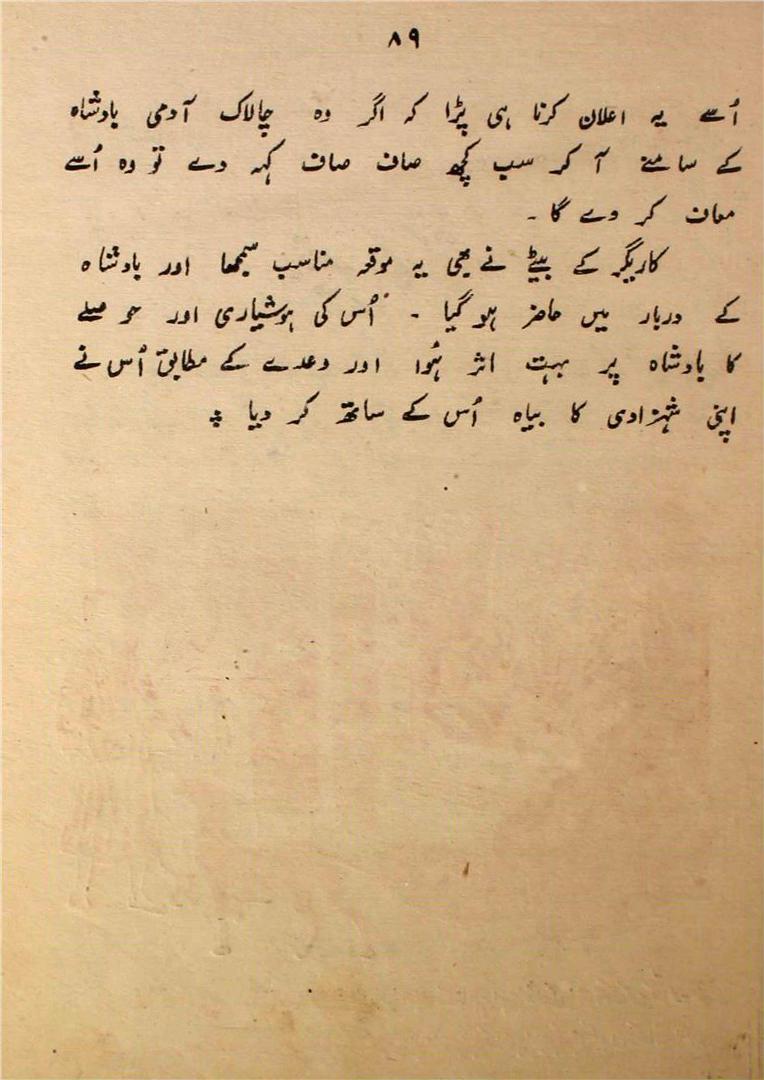 ۸۹
اُسے یہ اعلان کرنا ہی پڑا کہ اگر وہ چالاک آدمی بادشاہ
کے سامنے آ کر سب کچھ صاف صاف کہہ دے تو وہ اُسے
معاف کر دے گا ۔
کاریگر کے بیٹے نے بھی یہ موقعہ مناسب سمجھا اور بادشاہ
کے دربار میں حاضر ہو گیا ۔ اُس کی ہوشیاری اور حوصلے
کا بادشاہ پر بہت اثر ہُوا اور وعدے کے مطابق اُس نے
اپنی شہزادی کا بیاہ اُس کے ساتھ کر دیا ؞